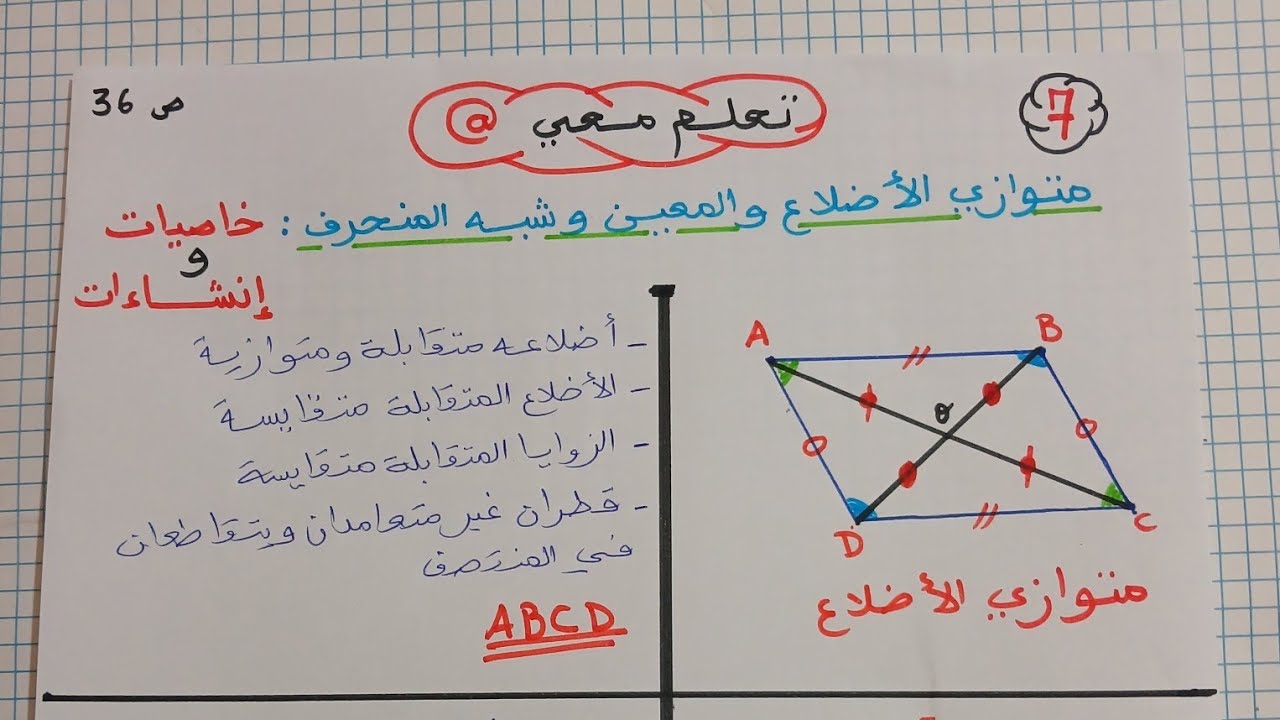 7
تعلم معي @
ص 36
متوازي الأضلاع والمعين وشبه المنحرف : خاصيات
و
إنشاءات
- أضلاعه متقابلة ومتوازية
- الأضلاع المتقابلة متقايسة
- الزوايا المتقابلة متقايسة
- قطران غير متعامدان ويتقاطعان
في المنتصف
ABCD
A
B
O
D
C
متوازي الأضلاع